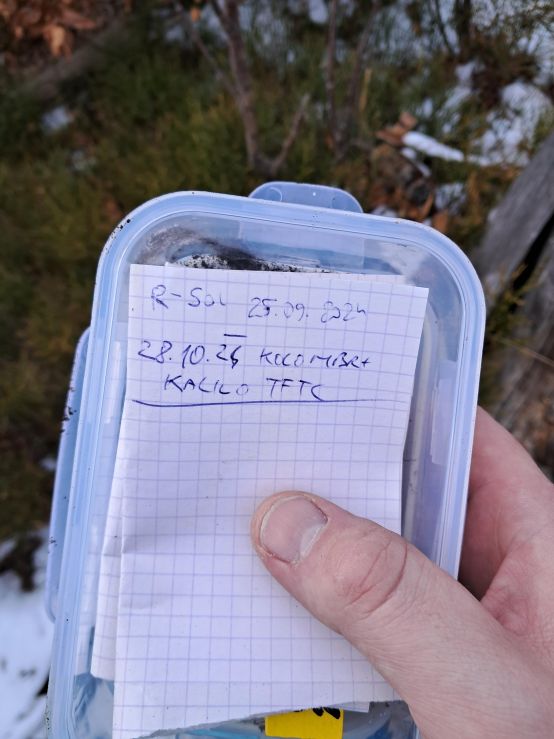 R-SOL 25.09.2024
28.10.24 KOLOMBR+
KALILO TFTC